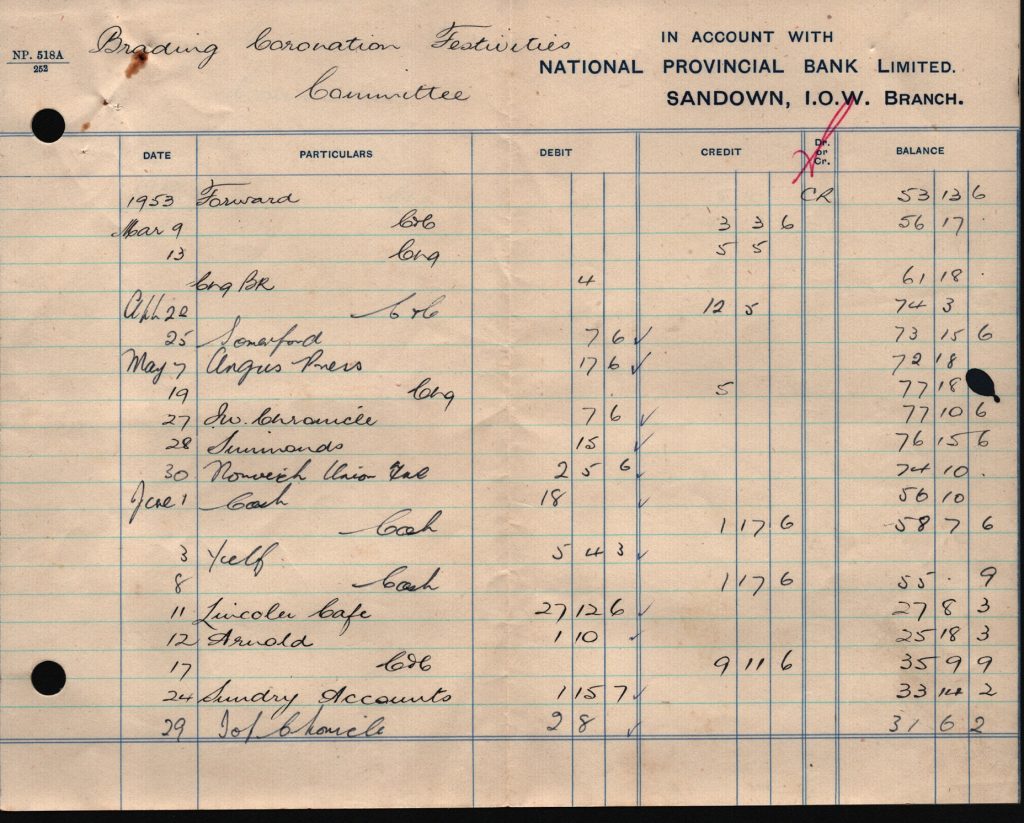 Brading Coronation Festivities
Committee
NP. 518A
252
IN ACCOUNT WITH
NATIONAL PROVINCIAL BANK LIMITED.
SANDOWN, I.O.W. BRANCH.
DATE PARTICULARS DEBIT CREDIT Dr. or Cr. BALANCE
1953 Forward CR 53 13 6
Mar 9 C&C 3 3 6 56 17
13 Chq 5 5
Chq BK 4 61 18
Apl 20 C&C 12 5 74 3
25 Somerford 7 6 ✓ 73 15 6
May 7 Angus Press 17 6 ✓ 72 18
19 Chq 5 77 18
27 I.W. Chronicle 7 6 ✓ 77 10 6
28 Simmonds 15 ✓ 76 15 6
30 Norwich Union 2 5 6 ✓ 74 10
June 1 Cash 18 ✓ 56 10
Cash 1 17 6 58 7 6
3 Yelf 5 4 3 ✓
8 Cash 1 17 6 55 9
11 Lincoln Cafe 27 12 6 ✓ 27 8 3
12 Arnold 1 10 ✓ 25 18 3
17 C&C 9 11 6 35 9 9
24 Sundry Accounts 1 15 7 ✓ 33 14 2
29 Chronicle 2 8 ✓ 31 6 2